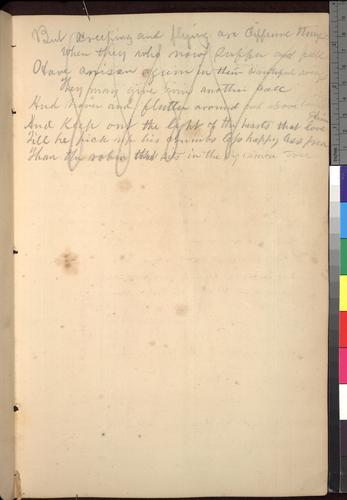 But creeping and flying are different things
When they who now supper and fall
Have arisen again in their beautiful
They may give him another fall
And hover and flutter around and above
And keep out the light of the hearts that love him
Till he pick up his crumbs less happy less free
Than the robin that sits in the sycamore tree